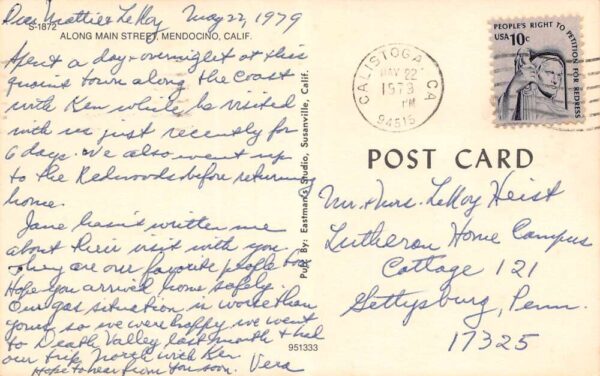 Dear Mattie & LeRoy May 22, 1979
S-1872
ALONG MAIN STREET, MENDOCINO, CALIF.
Spent a day & overnight at this
quaint town along the Coast
with Ken while he visited
with us just recently for
6 days. We also went up
to the Redwoods before returning
home.
Jane hasn't written me
about their visit with you.
They are our favorite people too
Hope you arrived home safely.
Our gas situation is worse than
yours so we were happy we went
to Death Valley last month & had
our trip North with Ken
Hope to hear from you soon. Vera
Pub. By: Eastman's Studio, Susanville, Calif.
951333
CALISTOGA, CA
MAY 22
PM
94515
PEOPLE'S RIGHT TO PETITION FOR REDRESS
USA 10c
POST CARD
Mr. & Mrs. LeRoy Heist
Lutheran Home Campus
Cottage 121
Gettysburg, Penn.
17325